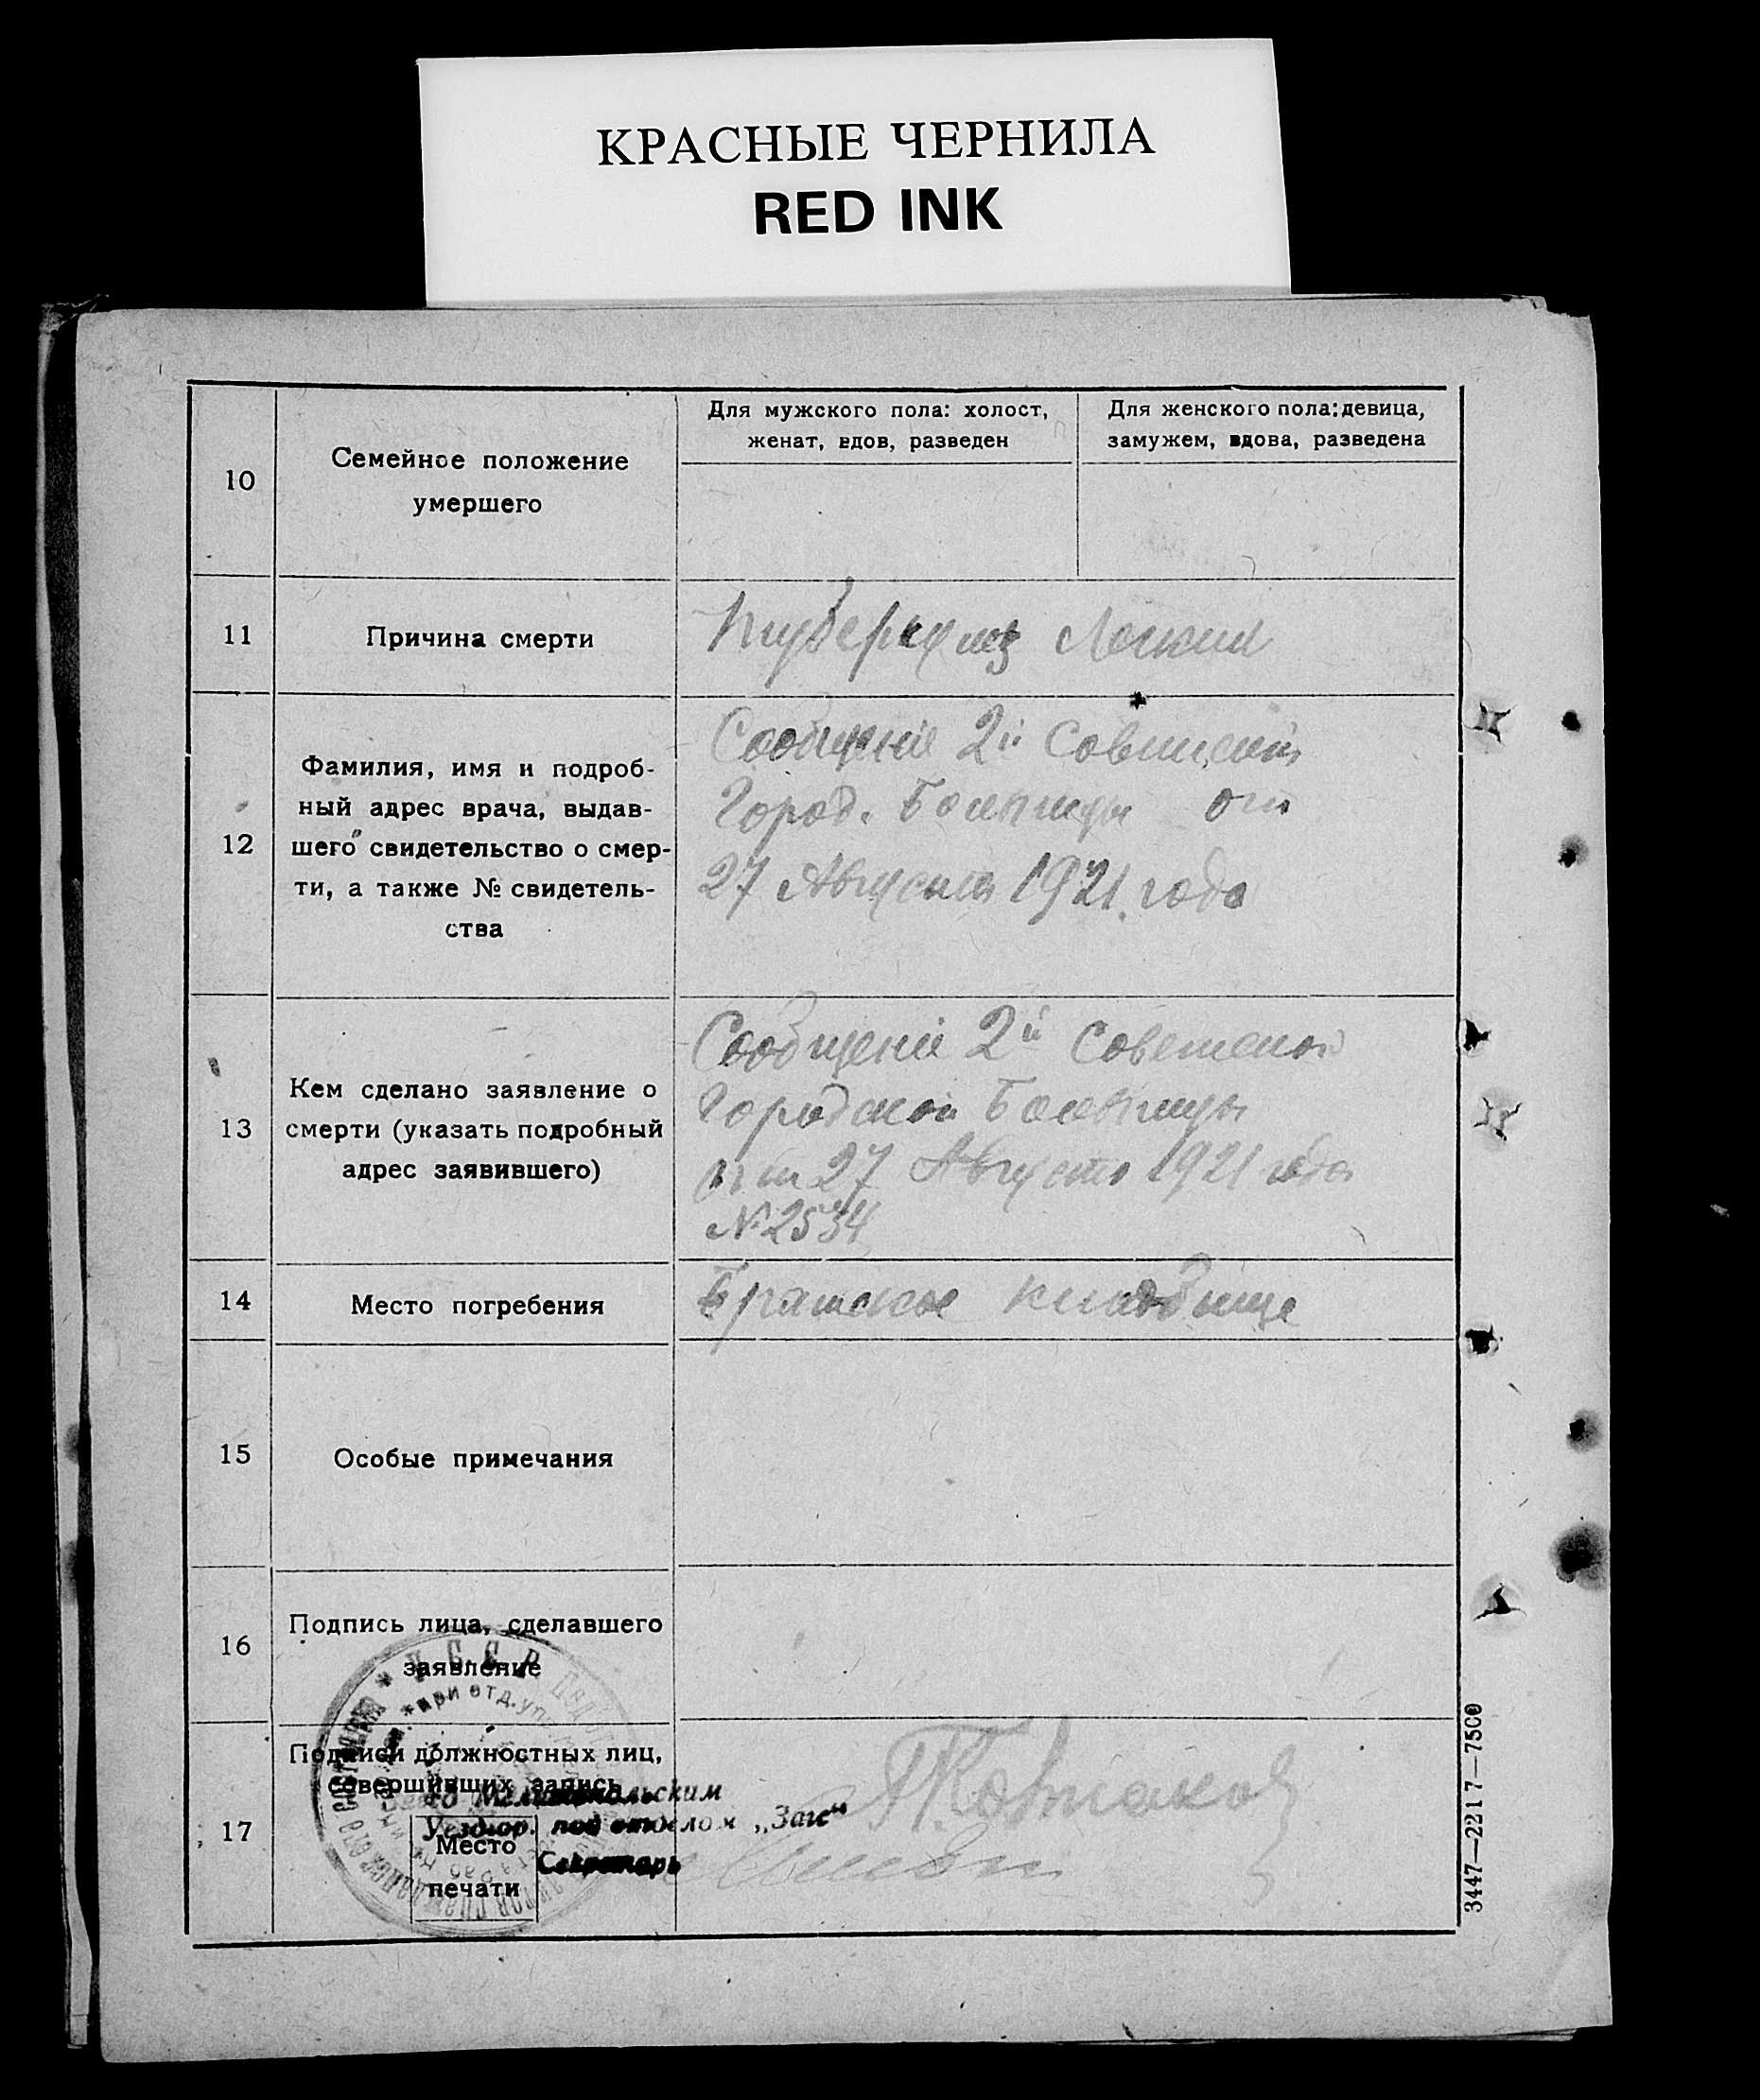 КРАСНЫЕ ЧЕРНИЛА
RED INK
10
Семейное положение
умершего
Для мужского пола: холост,
женат, вдов, разведен
Для женского пола: девица,
замужем, вдова, разведена
11
Причина смерти
Туберкулез Легких
12
Фамилия, имя и подроб-
ный адрес врача, выдав-
шего свидетельство о смер-
ти, а также № свидетель-
ства
Сообщение 2й Советской
Город. Больницы от
27 Августа 1921 года
13
Кем сделано заявление о
смерти (указать подробный
адрес заявившего)
Сообщение 2й Советской
Городской Больницы
от 27 Августа 1921 года
№ 2534
14
Место погребения
Братское кладбище
15
Особые примечания
16
Подпись лица, сделавшего
заявление
17
Подписи должностных лиц,
совершивших запись
Место
печати
У.С.С.Р.
при отд. упр
Мелитопольским
Уездгор. под отделом „Загс“
Секретарь
3447—2217—7500